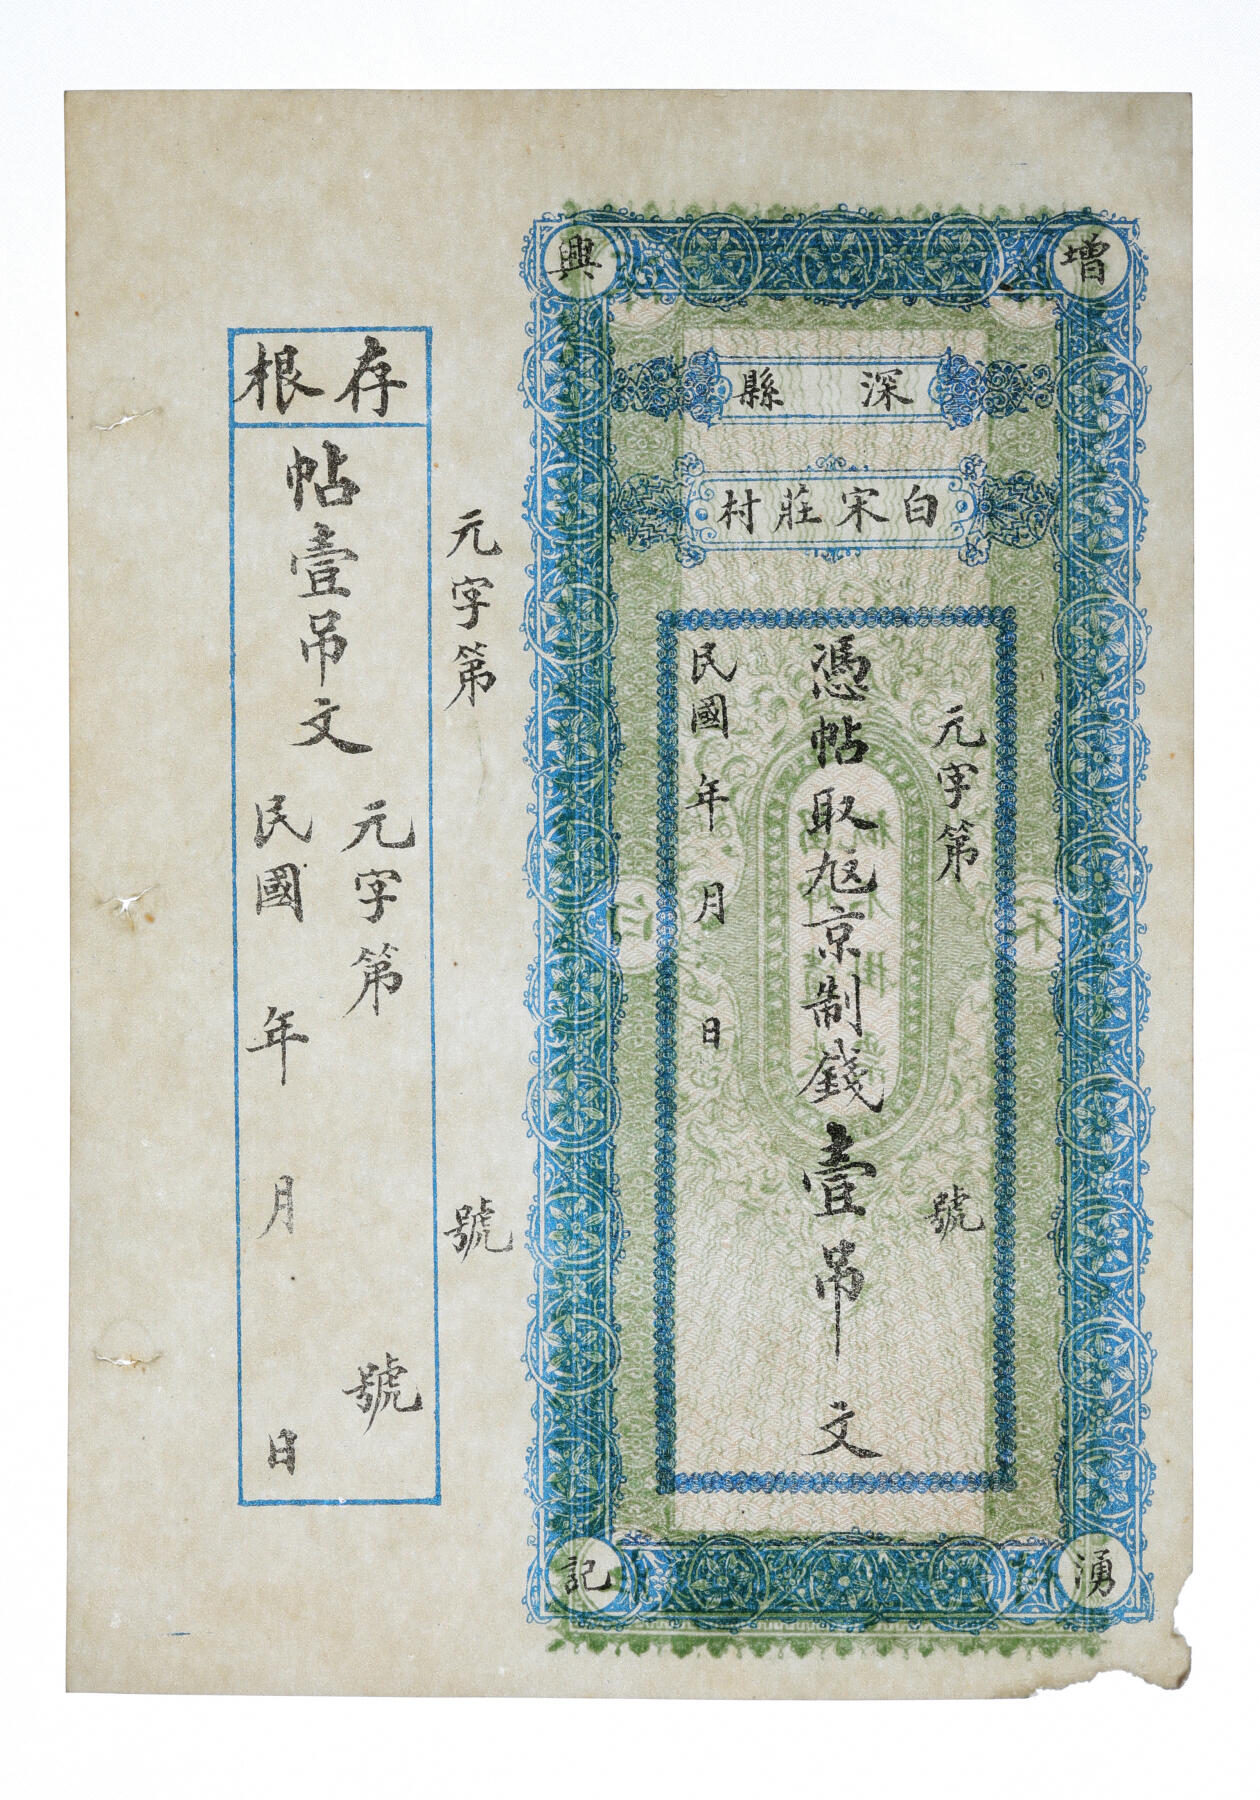 增
興
深縣
白宋莊村
元字第 號
憑帖取 京制錢壹吊文
民國 年 月 日
湧
記
元字第 號
存根
帖壹吊文
元字第 號
民國 年 月 日